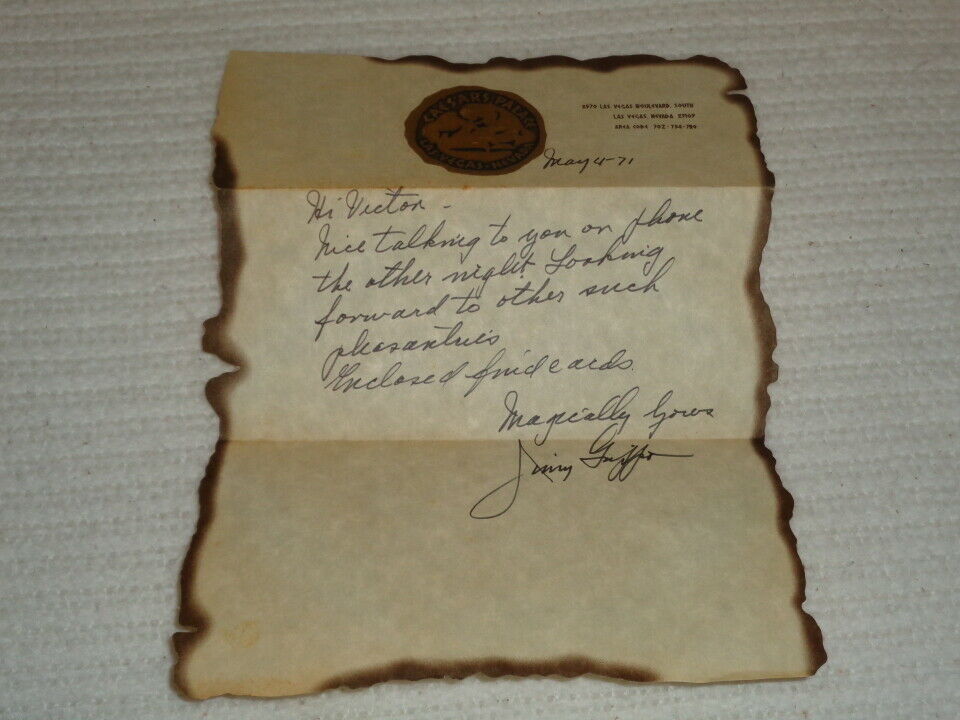 CAESARS PALACE
LAS VEGAS · NEVADA
3570 LAS VEGAS BOULEVARD, SOUTH
LAS VEGAS, NEVADA 89109
AREA CODE 702
May 71
Hi Victor -
Nice talking to you on phone
the other night Looking
forward to other such
pleasantries
Enclosed find cards.
Magically Yours
Jimmy Grippo